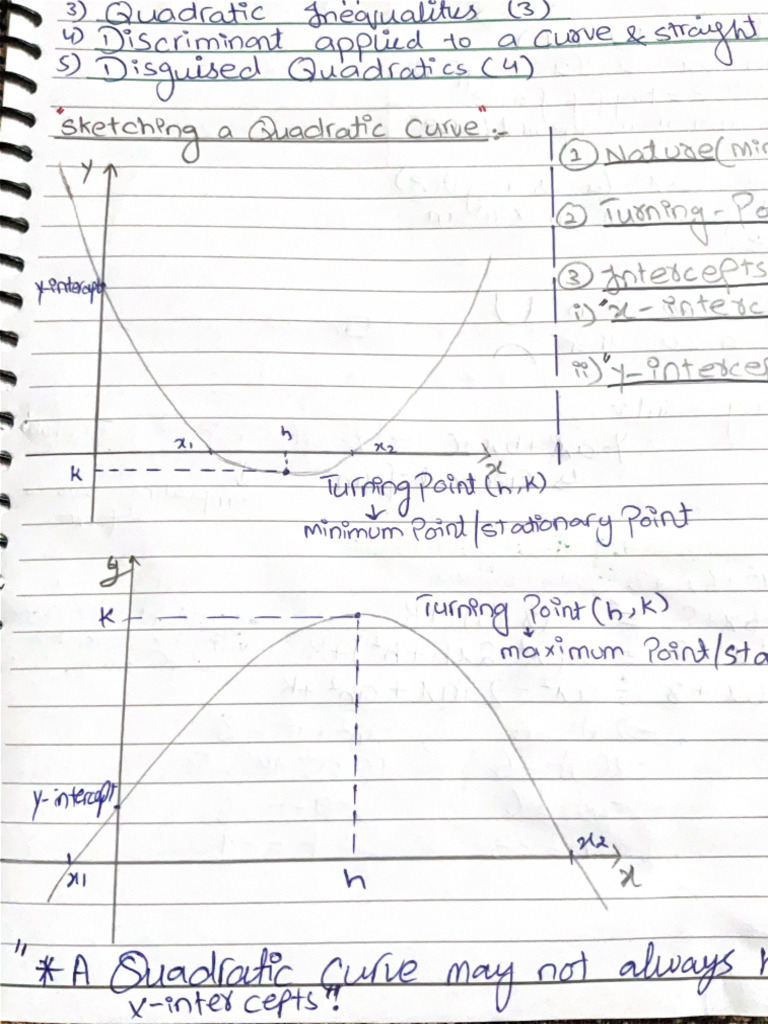 3) Quadratic Inequalities (3)
4) Discriminant applied to a curve & straight
5) Disguised Quadratics (4)
"Sketching a Quadratic Curve":-
① Nature(min
② Turning-Po
③ Intercepts
i) "x-interc
ii) "y-interce
y
y-intercept
x1
h
x2
x
k
Turning Point (h,k)
↓
minimum Point/stationary Point
y
k
Turning Point (h,k)
↓
maximum Point/sta
y-intercept
x1
h
x2
x
"*A Quadratic Curve may not always h
x-intercepts"!